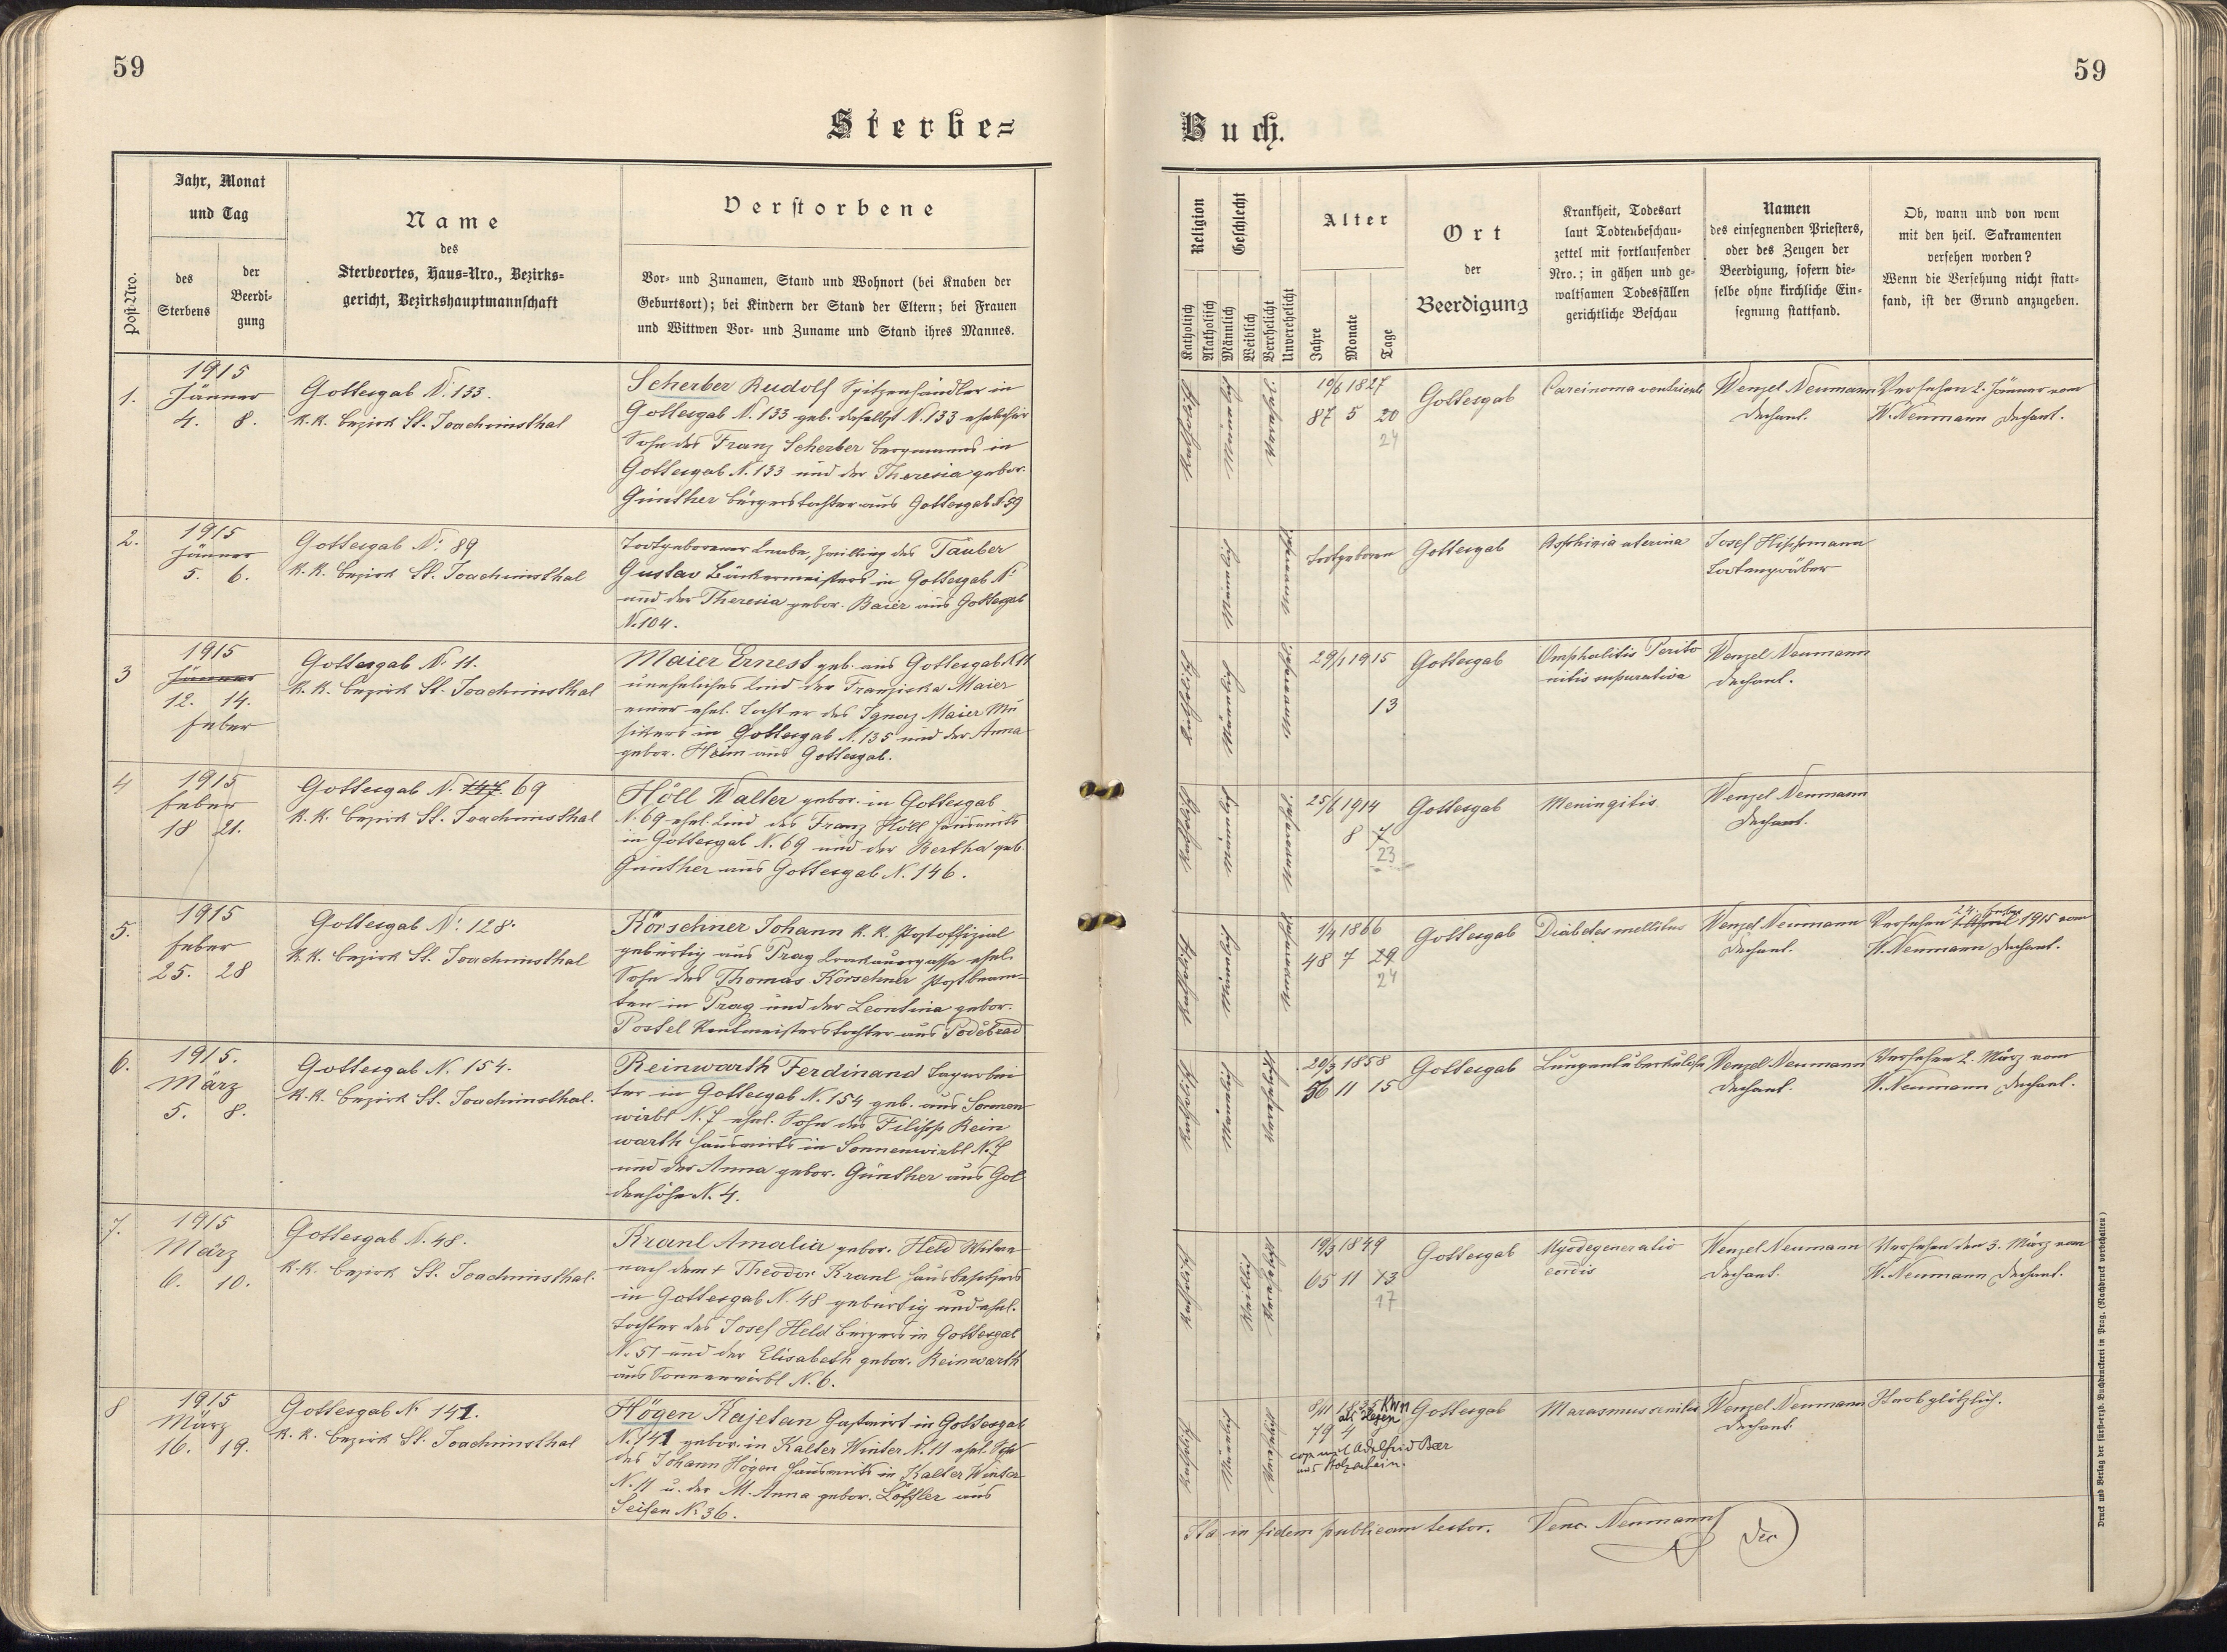 59
59
Sterbe=
Buch.
Post-Nro.
Jahr, Monat
und Tag
des
Sterbens
der
Beerdi-
gung
Name
des
Sterbeortes, Haus-Nro., Bezirks-
gericht, Bezirkshauptmannschaft
Verstorbene
Vor- und Zunamen, Stand und Wohnort (bei Knaben der
Geburtsort); bei Kindern der Stand der Eltern; bei Frauen
und Wittwen Vor- und Zuname und Stand ihres Mannes.
Religion
Katholisch
Akatholisch
Geschlecht
Männlich
Weiblich
Verehelicht
Unverehelicht
Alter
Jahre
Monate
Tage
Ort
der
Beerdigung
Krankheit, Todesart
laut Todtenbeschau-
zettel mit fortlaufender
Nro.; in gähen und ge-
waltsamen Todesfällen
gerichtliche Beschau
Namen
des einsegnenden Priesters,
oder des Zeugen der
Beerdigung, sofern die-
selbe ohne kirchliche Ein-
segnung stattfand.
Ob, wann und von wem
mit den heil. Sakramenten
versehen worden?
Wenn die Versehung nicht statt-
fand, ist der Grund anzugeben.
1.
1915
Jänner
4. 8.
Gottesgab N. 133.
k.k. Bezirk St. Joachimsthal
Scherber Rudolf Spitzenhändler in
Gottesgab N. 133 geb. daselbst N. 133 ehelicher
Sohn des Franz Scherber Bergmanns in
Gottesgab N. 133 und der Theresia gebor.
Günther Bürgerstochter aus Gottesgab N 59
Katholisch
Männlich
Verehelicht
10/6 1827
87 5 20
24
Gottesgab
Carcinoma ventriculi
Wenzel Neumann
Dechant.
Versehen 2. Jänner vom
W. Neumann Dechant.
2.
1915
Jänner
5. 6.
Gottesgab N. 89
k.k. Bezirk St. Joachimsthal
Todtgeborener Knabe, Zwilling des Tauber
Gustav Bäckermeisters in Gottesgab N.
und der Theresia gebor. Baier aus Gottesgab
N. 104.
Männlich
Todtgeboren
Gottesgab
Asphixia uterina
Josef Hischmann
Todtengräber
3
1915
Jänner
12. 14.
Feber
Gottesgab N. 11.
k.k. Bezirk St. Joachimsthal
Maier Ernest geb. aus Gottesgab N 11
uneheliches Kind der Franziska Maier
einer ehel. Tochter des Ignaz Maier Mu
sikers in Gottesgab N. 135 und der Anna
gebor. Heim aus Gottesgab.
Katholisch
Männlich
Unverehelicht
29/1 1915
13
Gottesgab
Omphalitis Perito
nitis supurativa
Wenzel Neumann
Dechant.
4
1915
Feber
18 21.
Gottesgab N. 147. 69
k.k. Bezirk St. Joachimsthal
Höll Walter gebor. in Gottesgab
N. 69 ehel. Kind des Franz Höll Hauswirts
in Gottesgab N. 69 und der Bertha geb.
Günther aus Gottesgab N. 146.
Katholisch
Männlich
Unverehelicht
25/6 1914
8 7
23
Gottesgab
Meningitis
Wenzel Neumann
Dechant.
5.
1915
Feber
25. 28
Gottesgab N. 128.
k.k. Bezirk St. Joachimsthal
Körschner Johann k.k. Postoffizial
gebürtig aus Prag Krakauergasse ehel.
Sohn des Thomas Körschner Postbeam-
ten in Prag und der Leontina gebor.
Postel Rentmeisterstochter aus Poděbrad
Katholisch
Männlich
Unverehelicht
1/4 1866
48 7 29
24
Gottesgab
Diabetes mellitus
Wenzel Neumann
Dechant.
24. Feber
Versehen 1. April 1915 vom
W. Neumann Dechant.
6.
1915.
März
5. 8.
Gottesgab N. 154.
k.k. Bezirk St. Joachimsthal.
Reinwarth Ferdinand Tagarbei
ter in Gottesgab N. 154 geb. aus Sonnen
wirbl N. 7 ehel. Sohn des Filipp Rein
warth Hauswirts in Sonnenwirbl N. 7
und der Anna gebor. Günther aus Gol
denhöhe N. 4.
Katholisch
Männlich
Verehelicht
20/3 1858
56 11 15
Gottesgab
Lungentuberkulose
Wenzel Neumann
Dechant.
Versehen 2. März vom
W. Neumann Dechant.
7.
1915
März
6. 10.
Gottesgab N. 48.
k.k. Bezirk St. Joachimsthal.
Kranl Amalia gebor. Held Witwe
nach dem + Theodor Kranl Hausbesitzers
in Gottesgab N. 48 gebürtig und ehel.
Tochter des Josef Held Bürgers in Gottesgab
N. 51 und der Elisabeth gebor. Reinwarth
aus Sonnenwirbl N. 6.
Katholisch
Weiblich
Verehelicht
19/3 1849
65 11 13
17
Gottesgab
Myodegeneratio
cordis
Wenzel Neumann
Dechant.
Versehen den 3. März vom
W. Neumann Dechant.
8
1915
März
16. 19.
Gottesgab N. 141.
k.k. Bezirk St. Joachimsthal
Högen Kajetan Gastwirt in Gottesgab
N. 141 gebor. in Kalter Winter N. 11 ehel. Sohn
des Johann Högen Hauswirts in Kalter Winter
N. 11 u. der M. Anna gebor. Löffler aus
Seifen N. 36.
Katholisch
Männlich
Verehelicht
8/11 1835
79 4
Gottesgab
Marasmus senilis
Wenzel Neumann
Dechant.
Starb plötzlich.
Ita in fidem publicam testor. Venc. Neumann Dec
Druck und Verlag der fürsterzb. Buchdruckerei in Prag. (Nachdruck vorbehalten)